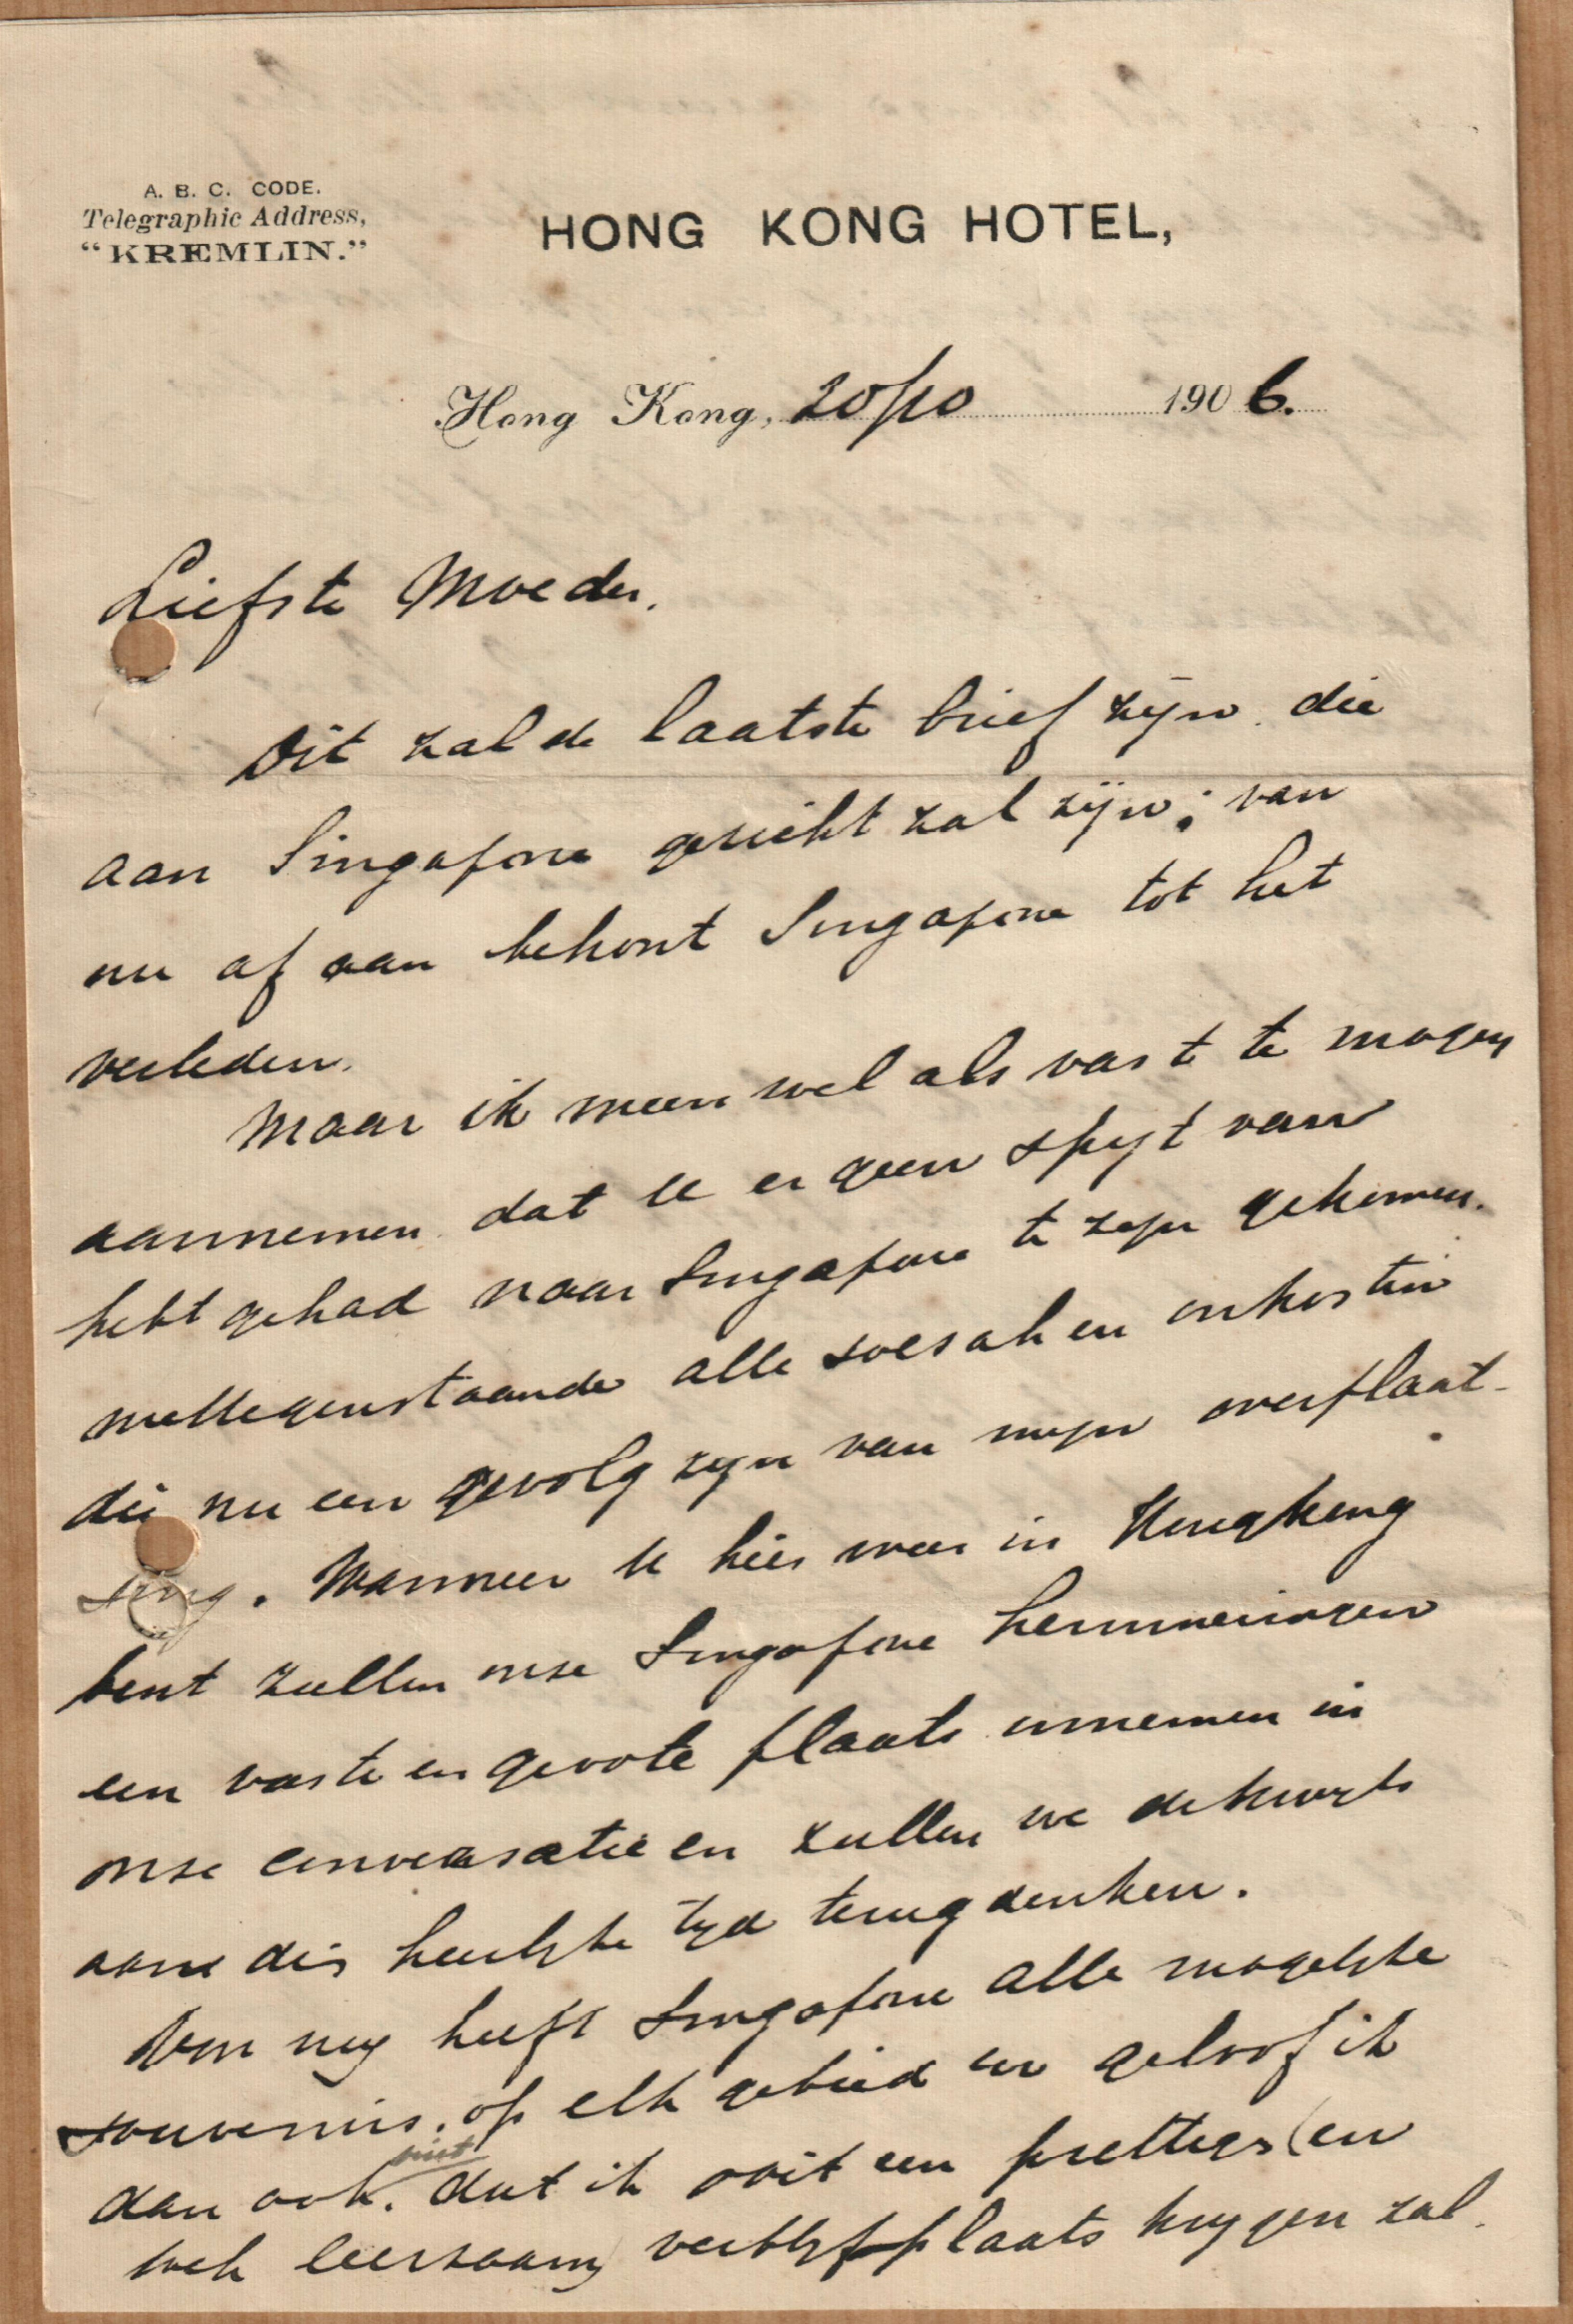 A. B. C. CODE.
Telegraphic Address,
"KREMLIN."
HONG KONG HOTEL,
Hong Kong, 20/10 1906.
Liefste Moeder.
Dit zal de laatste brief zijn die
aan Singapore gericht zal zijn; van
nu af aan behoort Singapore tot het
verleden.
Maar ik meen wel als vast te mogen
aannemen dat U er geen spijt van
hebt gehad naar Singapore te zijn gekomen.
niettegenstaande alle soesah en onkosten
die nu een gevolg zijn van mijn overplaat-
sing. Wanneer U hier weer in Hongkong
bent zullen onze Singapore herinneringen
een vaste en groote plaats innemen in
onze conversatie en zullen we dikwijls
aan die heerlijke tijd terugdenken.
Voor mij heeft Singapore alle mogelijke
souvenirs. op elk gebied en geloof ik
dan ook. niet dat ik ooit een prettiger (en
ook leerzaam) verblijfplaats krijgen zal.